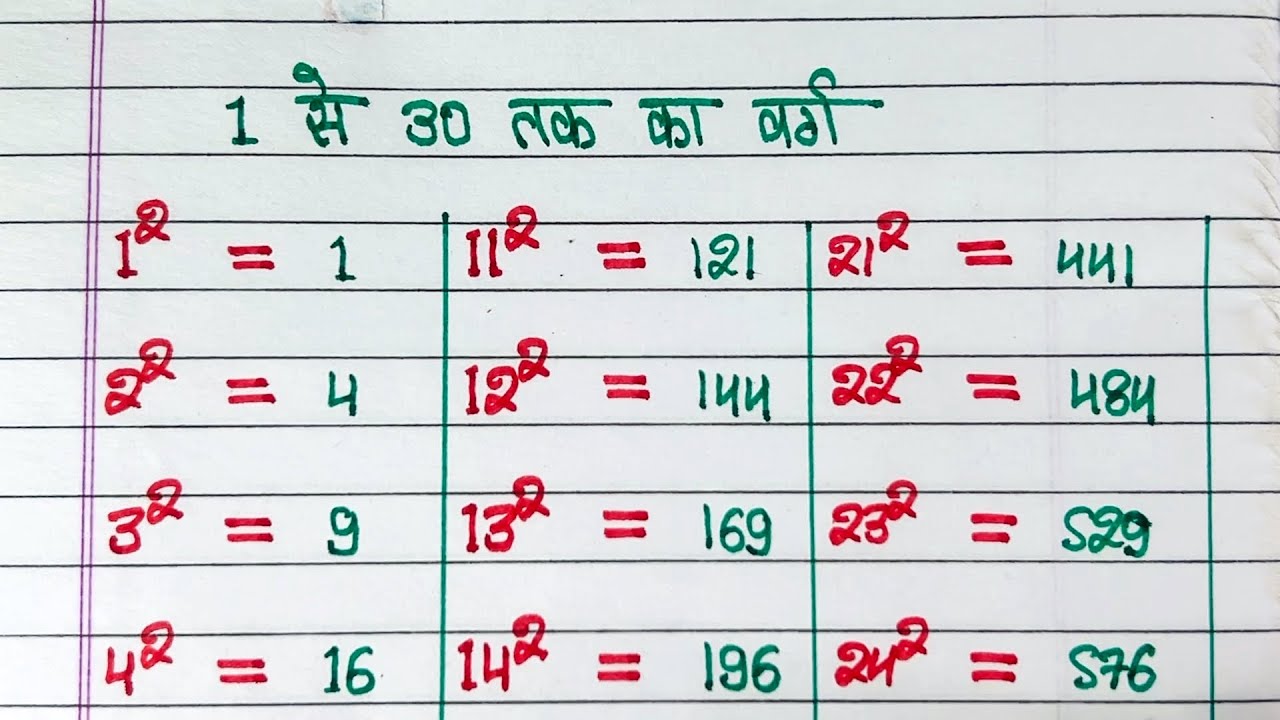 1 से 30 तक का वर्ग
1² = 1 11² = 121 21² = 441
2² = 4 12² = 144 22² = 484
3² = 9 13² = 169 23² = 529
4² = 16 14² = 196 24² = 576